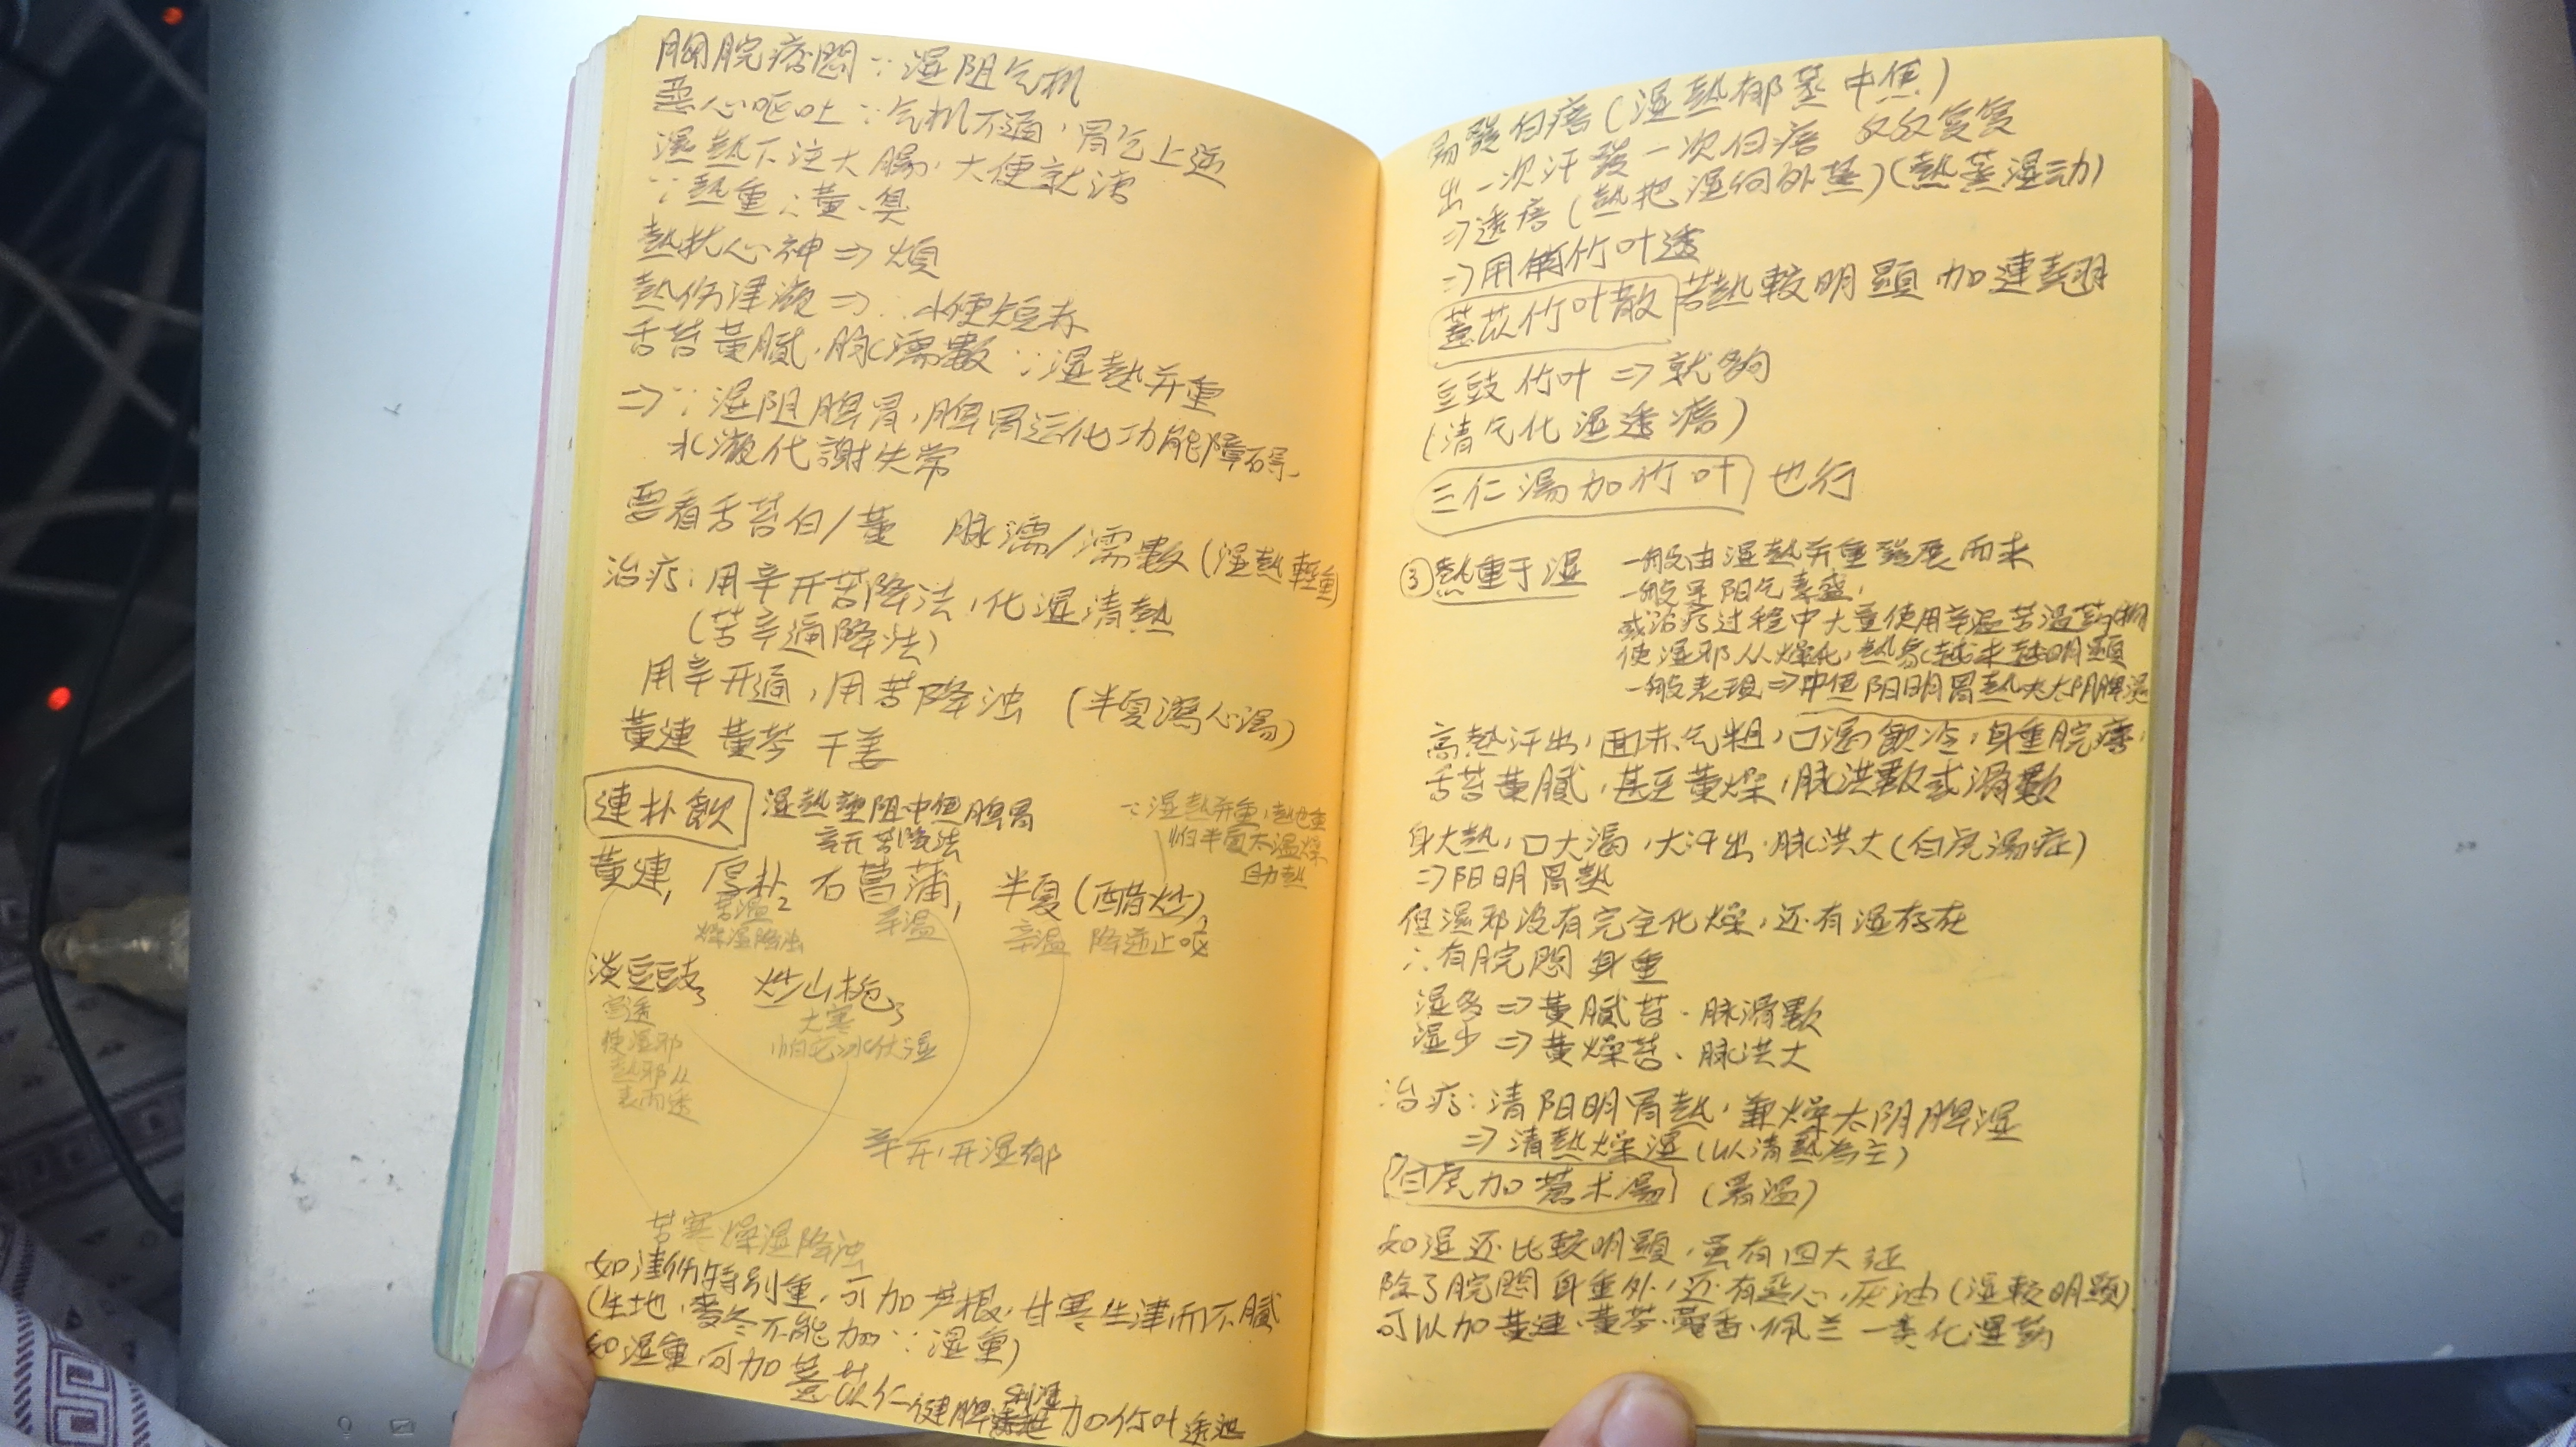 胸脘痞悶∵湿阻气机
恶心呕吐∵气机不通,胃气上逆
濕熱下注大腸,大便就溏
∵熱重∴黃、臭
熱扰心神⇒煩
熱伤津液⇒∴小便短赤
舌苔黃膩,脉濡數∵湿熱并重
⇒∵湿阻脾胃,脾胃运化功能障碍
水液代謝失常
要看舌苔白/黃 脉濡/濡數(湿熱輕重)
治疗:用辛开苦降法,化湿清熱
(苦辛通降法)
用辛开通,用苦降浊 (半夏瀉心湯)
黃連 黃芩 干姜
連朴飲 湿熱壅阻中焦脾胃
辛开苦降法
∵湿熱并重,熱也重
怕半夏太温燥
助熱
黃連1 厚朴2 石菖蒲1 半夏(醋炒)2
苦温 辛温 辛温 降逆止呕
燥湿降浊
淡豆豉3 炒山栀3
宣透 大寒
使湿邪 怕它冰伏湿
熱邪从
表而透
辛开,开湿郁
苦寒燥湿降浊
如津伤特别重,可加芦根,甘寒生津而不膩
(生地,麥冬不能加∵湿重)
如湿重,可加薏苡仁健脾利湿 加竹叶透
易發白㾦(湿熱郁蒸中焦)
出一次汗發一次白㾦 反反复复
⇒透㾦(熱把湿向外蒸)(熱蒸湿动)
⇒用竹叶透
薏苡竹叶散 若熱較明顯 加連翹
豆豉竹叶⇒就夠
(清气化湿透㾦)
三仁湯加竹叶 也行
③熱重于湿 一般由湿熱并重發展而来
一般是阳气素盛,
或治疗过程中大量使用辛温苦温药物
使湿邪从燥化,熱象越来越明顯
一般表現⇒中焦阳明胃熱夾太阴脾湿
高熱汗出,面赤气粗,口渴飲冷,身重脘痞,
舌苔黃膩,甚至黃燥,脉洪數或滑數
身大熱,口大渴,大汗出,脉洪大(白虎湯症)
⇒阳明胃熱
但湿邪没有完全化燥,还有湿存在
∴有脘悶身重
湿多⇒黃膩苔、脉滑數
湿少⇒黃燥苔、脉洪大
治疗:清阳明胃熱,兼燥太阴脾湿
⇒清熱燥湿(以清熱為主)
白虎加蒼术湯 (暑温)
如湿还比較明顯,虽有四大証
除了脘悶身重外,还有恶心,灰油(湿較明顯)
可以加黃連、黃芩、藿香、佩兰一类化湿药